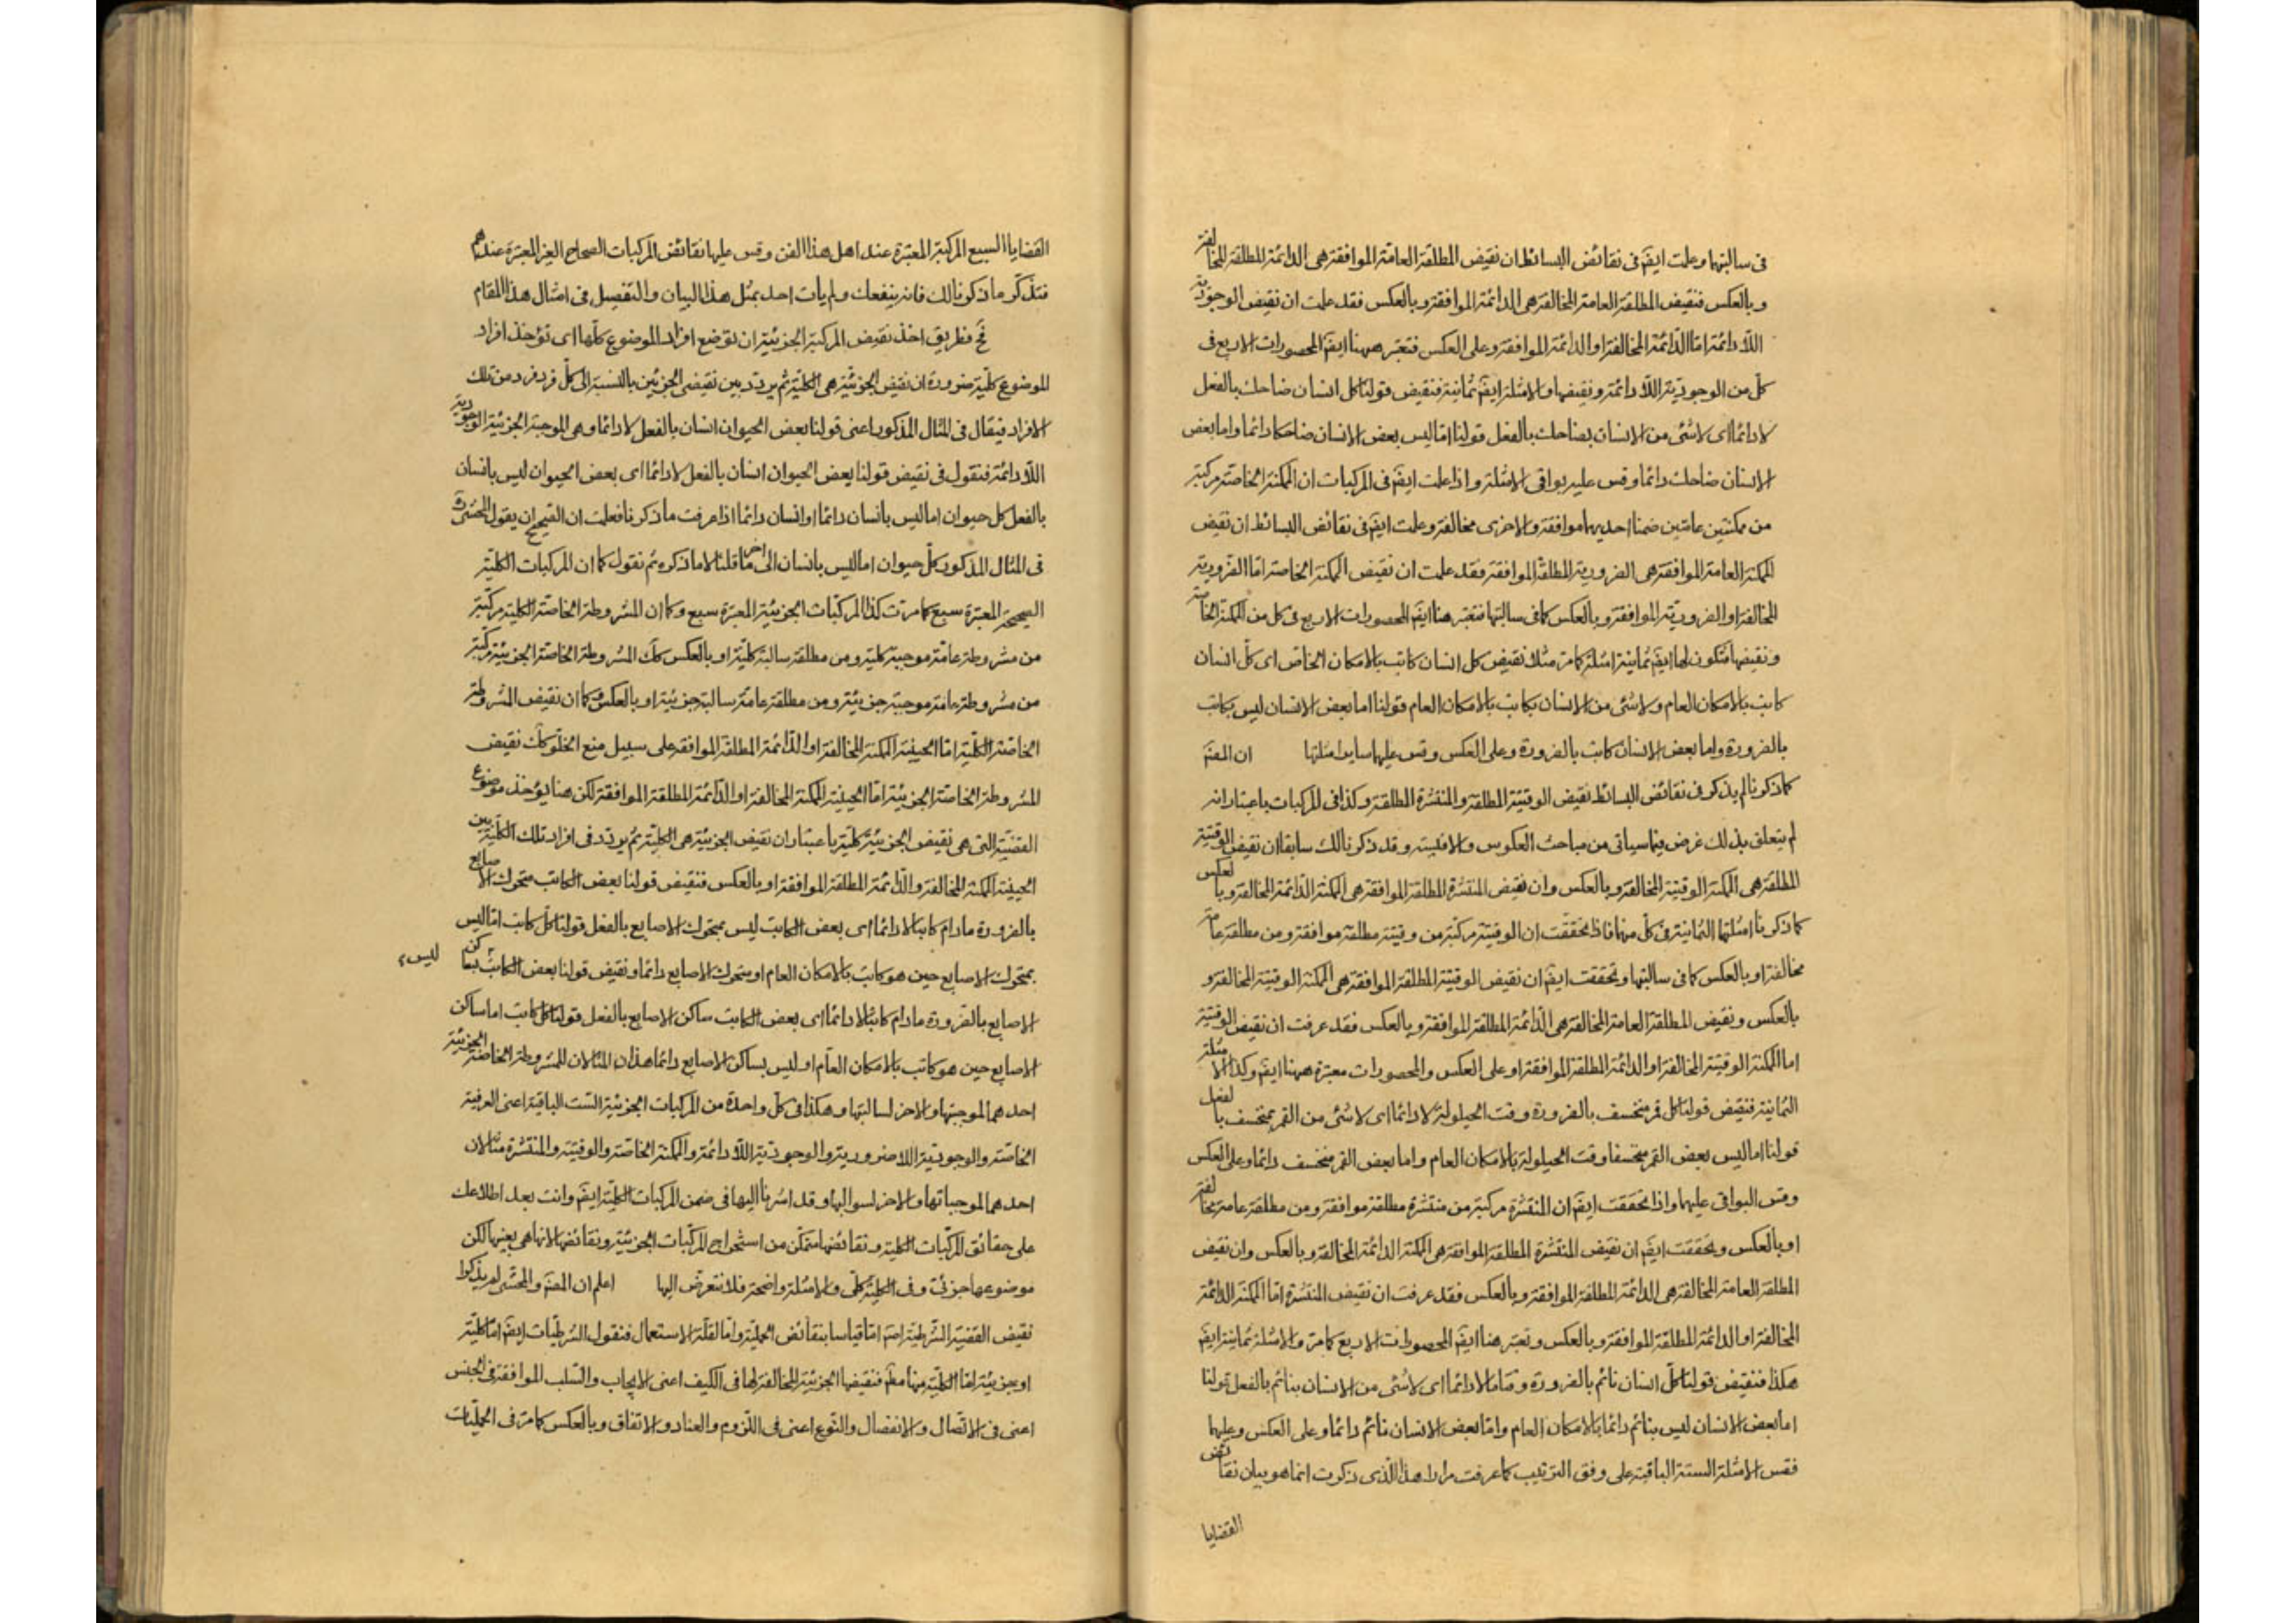 فى سالبتها وعلمت ايضا فى نقائض البسائط ان نقيض المطلقة العامة الموافقة هى الدائمة المطلقة المخالفة
وبالعكس فنقيض المطلقة العامة المخالفة هى الدائمة الموافقة وبالعكس فقد علمت ان نقيض الوجودية
اللادائمة اما الدائمة المخالفة او الدائمة الموافقة وعلى العكس فتعتبر ههنا ايضا المحصورات الاربع فى
كل من الوجودية اللادائمة ونقيضها والامثلة ايضا ثمانية فنقيض قولنا كل انسان ضاحك بالفعل
لا دائما اى لا شئ من الانسان بضاحك بالفعل قولنا اما ليس بعض الانسان ضاحكا دائما واما بعض
الانسان ضاحك دائما وقس عليه بواقى الامثلة واذا علمت ايضا فى المركبات ان الممكنة الخاصة مركبة
من ممكنتين عامتين ضمنا احديهما موافقة والاخرى مخالفة وعلمت ايضا فى نقائض البسائط ان نقيض
الممكنة العامة الموافقة هى الضرورية المطلقة الموافقة فقد علمت ان نقيض الممكنة الخاصة اما الضرورية
المخالفة او الضرورية الموافقة وبالعكس كما فى سالبتها فتعتبر هنا ايضا المحصورات الاربع فى كل من الممكنة الخاصة
ونقيضها فتكون لها ايضا ثمانية امثلة كما مر مثلا نقيض كل انسان كاتب بالامكان الخاص اى كل انسان
كاتب بالامكان العام ولا شئ من الانسان بكاتب بالامكان العام قولنا اما بعض الانسان ليس بكاتب
بالضرورة واما بعض الانسان كاتب بالضرورة وعلى العكس وقس عليها ساير امثلتها ان المص
كما ذكرنا لم يذكر فى نقائض البسائط نقيض الوقتية المطلقة والمنتشرة المطلقة وكذا فى المركبات باعتبار انه
لم يتعلق بذلك غرض فيما سياتى من مباحث العكوس والاقيسة وقد ذكرنا لك سابقا ان نقيض الوقتية
المطلقة هى الممكنة الوقتية المخالفة وبالعكس وان نقيض المنتشرة المطلقة الموافقة هى الممكنة الدائمة المخالفة وبالعكس
كما ذكرنا امثلتها الثمانية فى كل منها فاذا تحققت ان الوقتية مركبة من وقتية مطلقة موافقة ومن مطلقة عامة
مخالفة او بالعكس كما فى سالبتها وتحققت ايضا ان نقيض الوقتية المطلقة الموافقة هى الممكنة الوقتية المخالفة و
بالعكس ونقيض المطلقة العامة المخالفة هى الدائمة المطلقة الموافقة وبالعكس فقد عرفت ان نقيض الوقتية
اما الممكنة الوقتية المخالفة او الدائمة المطلقة الموافقة او على العكس والمحصورات معتبرة ههنا ايضا وكذا الامثلة
الثمانية فنقيض قولنا كل قمر منخسف بالضرورة وقت الحيلولة لا دائما اى لا شئ من القمر بمنخسف بالفعل
قولنا اما ليس بعض القمر منخسفا وقت الحيلولة بالامكان العام واما بعض القمر منخسف دائما وعلى العكس
وقس البواقى عليها واذا تحققت ايضا ان المنتشرة مركبة من منتشرة مطلقة موافقة ومن مطلقة عامة مخالفة
او بالعكس وتحققت ايضا ان نقيض المنتشرة المطلقة الموافقة هى الممكنة الدائمة المخالفة وبالعكس وان نقيض
المطلقة العامة المخالفة هى الدائمة المطلقة الموافقة وبالعكس فقد عرفت ان نقيض المنتشرة اما الممكنة الدائمة
المخالفة او الدائمة المطلقة الموافقة وبالعكس وتعتبر هنا ايضا المحصورات الاربع كما مر والامثلة ثمانية ايضا
هكذا فنقيض قولنا كل انسان نائم بالضرورة وقتا ما لا دائما اى لا شئ من الانسان بنائم بالفعل قولنا
اما بعض الانسان ليس بنائم دائما بالامكان العام واما بعض الانسان نائم دائما وعلى العكس وعليها
فقس الامثلة الستة الباقية على وفق الترتيب كما عرفت مرارا هذا الذى ذكرت انما هو بيان نقائض
القضايا
القضايا السبع المركبة المعتبرة عند اهل هذا الفن وقس عليها نقائض المركبات الصحاح الغير المعتبرة عندهم
فتذكر ما ذكرنا لك فانه ينفعك ولم يأت احد بمثل هذا البيان والتفصيل فى امثال هذا المقام
فح فطريق اخذ نقيض المركبة الجزئية ان توضع افراد الموضوع كلها اى تؤخذ افراد
الموضوع كلية ضرورة ان نقيض الجزئية هى الكلية ثم يردد بين نقيضى الجزئين بالنسبة الى كل فرد فرد من تلك
الافراد فيقال فى المثال المذكور اعنى قولنا بعض الحيوان انسان بالفعل لا دائما وهى الموجبة الجزئية الوجودية
اللادائمة فنقول فى نقيض قولنا بعض الحيوان انسان بالفعل لا دائما اى بعض الحيوان ليس بانسان
بالفعل كل حيوان اما ليس بانسان دائما او انسان دائما اذا عرفت ما ذكرنا فعلمت ان الصحيح ان يقول المحشى قده
فى المثال المذكور كل حيوان اما ليس بانسان الى اخر ما قلنا لا ما ذكره ثم نقول كما ان المركبات الكلية
الصحيحة المعتبرة سبع كما مرت كذا المركبات الجزئية المعتبرة سبع وكما ان المشروطة الخاصة الكلية مركبة
من مشروطة عامة موجبة كلية ومن مطلقة سالبة كلية او بالعكس كك المشروطة الخاصة الجزئية مركبة
من مشروطة عامة موجبة جزئية ومن مطلقة عامة سالبة جزئية او بالعكس وكما ان نقيض المشروطة
الخاصة الكلية اما الحينية الممكنة المخالفة او الدائمة المطلقة الموافقة على سبيل منع الخلو كك نقيض
المشروطة الخاصة الجزئية اما الحينية الممكنة المخالفة او الدائمة المطلقة الموافقة لكن هنا يؤخذ موضوع
القضية التى هى نقيض الجزئية كلية باعتبار ان نقيض الجزئية هى الكلية ثم يردد فى افراد تلك الكلية بين
الحينية الممكنة المخالفة والدائمة المطلقة الموافقة او بالعكس فنقيض قولنا بعض الكاتب متحرك الاصابع
بالضرورة مادام كاتبا لا دائما اى بعض الكاتب ليس بمتحرك الاصابع بالفعل قولنا كل كاتب اما ليس
بمتحرك الاصابع حين هو كاتب بالامكان العام او متحرك الاصابع دائما ونقيض قولنا بعض الكاتب بساكن
ليس
الاصابع بالضرورة مادام كاتبا لا دائما اى بعض الكاتب ساكن الاصابع بالفعل قولنا كل كاتب اما ساكن
الاصابع حين هو كاتب بالامكان العام او ليس بساكن الاصابع دائما هذان المثالان للمشروطة الخاصة الجزئية
احدهما لموجبتها والاخر لسالبتها وهكذا فى كل واحدة من المركبات الجزئية الست الباقية اعنى العرفية
الخاصة والوجودية اللاضرورية والوجودية اللادائمة والممكنة الخاصة والوقتية والمنتشرة مثالان
احدهما لموجباتها والاخر لسوالبها وقد اشرنا اليها فى ضمن المركبات الكلية ايضا وانت بعد اطلاعك
على حقائق المركبات الكلية ونقائضها متمكن من استخراج المركبات الجزئية ونقائضها لانها هى بعينها لكن
موضوعها جزئى وفى الكلية كلى والامثلة واضحة فلا نتعرض اليها اعلم ان المص والمحشى لم يذكرا
نقيض القضية الشرطية اما قياسا بنقائض الحملية واما لقلة الاستعمال فنقول الشرطيات ايضا اما كلية
او جزئية اما الكلية منها فنقيضها الجزئية المخالفة لها فى الكيف اعنى الايجاب والسلب الموافقة فى الجنس
اعنى فى الاتصال والانفصال والنوع اعنى فى اللزوم والعناد والاتفاق وبالعكس كما مر فى الحمليات